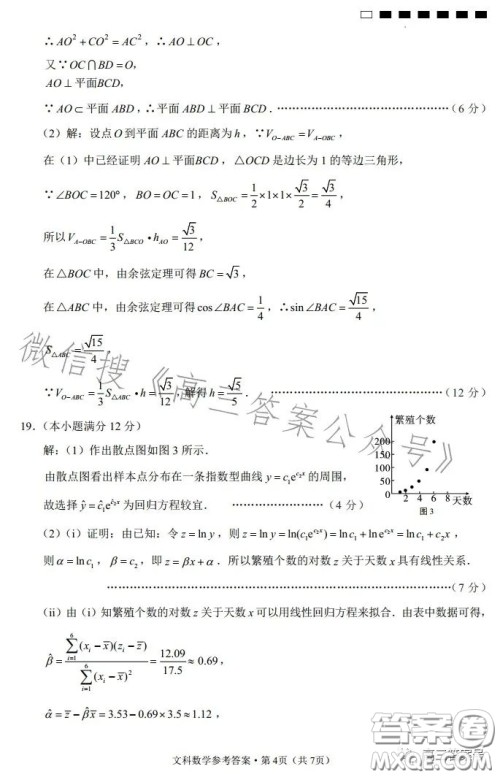 ∴ AO² + CO² = AC²，∴ AO ⊥ OC，
又∵ OC ∩ BD = O，
AO ⊥ 平面BCD，
∵ AO ⊂ 平面 ABD，∴ 平面 ABD ⊥ 平面 BCD．……………………………………（6 分）
（2）解：设点 O 到平面 ABC 的距离为 h，∵ V_{O−ABC} = V_{A−OBC}，
在（1）中已经证明 AO ⊥ 平面BCD，△OCD 是边长为 1 的等边三角形，
∵ ∠BOC = 120°，BO = OC = 1，S_{△BOC} = 1/2 × 1 × 1 × √3/2 = √3/4，
所以 V_{A−OBC} = 1/3 S_{△BCO} • h_{AO} = √3/12，
在 △BOC 中，由余弦定理可得 BC = √3，
在 △ABC 中，由余弦定理可得 cos∠BAC = 1/4，∴ sin∠BAC = √15/4，
S_{△ABC} = √15/4，
∵ V_{O−ABC} = 1/3 S_{△ABC} • h = √3/12，解得 h = √5/5．……………………（12 分）
19．（本小题满分 12 分）
解：（1）作出散点图如图 3 所示．
由散点图看出样本点分布在一条指数型曲线 y = c₁e^{c₂x} 的周围，
故选择 ŷ = ĉ₁e^{ĉ₂x} 为回归方程较宜．……………………（4 分）
繁殖个数
200
150
100
50
0 2 4 6 8 天数
图 3
（2）（i）证明：由已知：令 z = ln y，则 z = ln y = ln(c₁e^{c₂x}) = ln c₁ + ln e^{c₂x} = ln c₁ + c₂x，
则 α = ln c₁，β = c₂，即 z = βx + α．所以繁殖个数的对数 z 关于天数 x 具有线性关系．
……………………………………（7 分）
（ii）由（i）知繁殖个数的对数 z 关于天数 x 可以用线性回归方程来拟合．由表中数据可得，
β̂ = ∑_{i=1}^{6}(x_i − x̄)(z_i − z̄) / ∑_{i=1}^{6}(x_i − x̄)² = 12.09/17.5 ≈ 0.69，
α̂ = z̄ − β̂x̄ = 3.53 − 0.69 × 3.5 ≈ 1.12，
文科数学参考答案 • 第 4页（共 7页）
微信搜《高三答案公众号》
答案卷
MXQE.COM